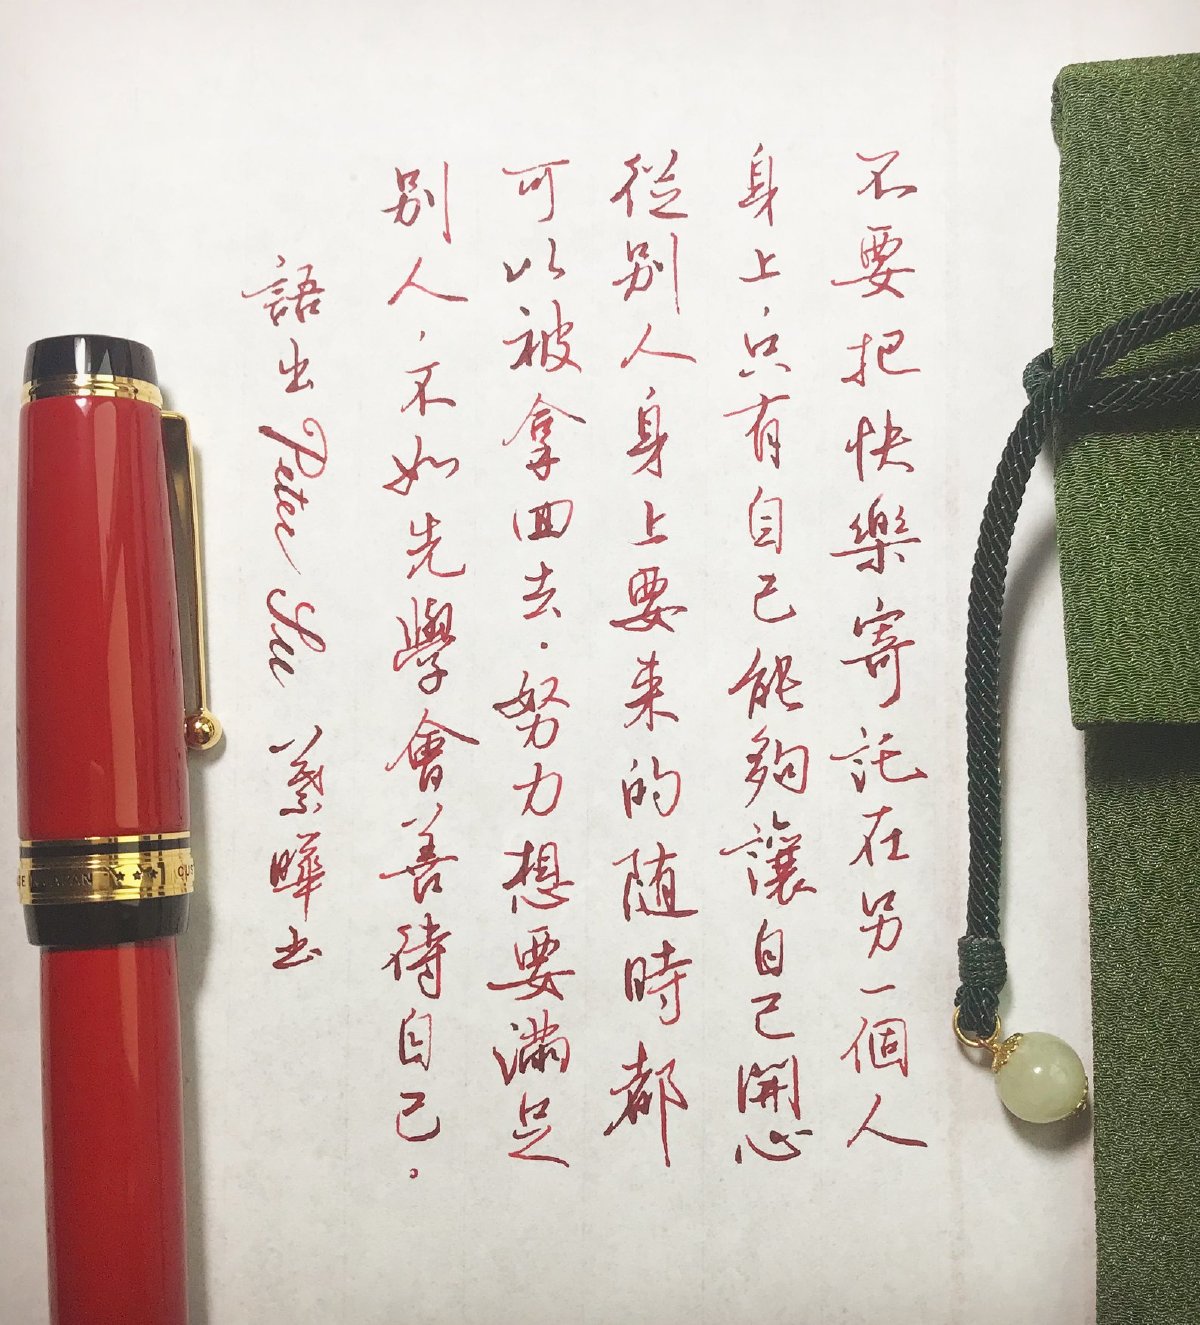 不要把快樂寄託在另一個人
身上，只有自己能夠讓自己開心
從別人身上要來的随時都
可以被拿回去，努力想要滿足
別人，不如先學會善待自己。
語出 Peter Su 蔡曄书